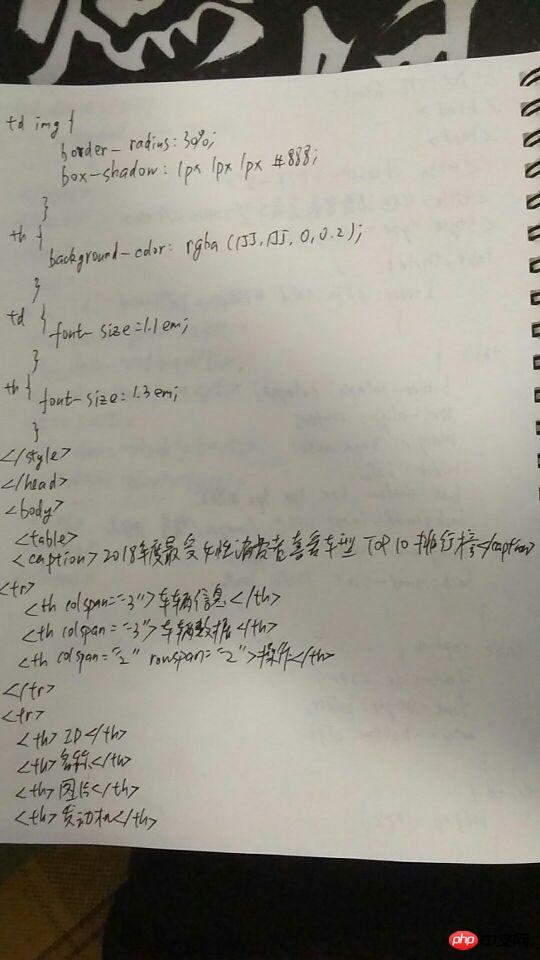 td img {
border-radius: 30%;
box-shadow: 1px 1px 1px #888;
}
th {
background-color: rgba (155, 155, 0, 0.2);
}
td {
font-size=1.1em;
}
th {
font-size: 1.3em;
}
</style>
</head>
<body>
<table>
<caption>2018年度最受女性消费者喜爱车型 TOP 10 排行榜</caption>
<tr>
<th colspan="3">车辆信息</th>
<th colspan="3">车辆数据</th>
<th colspan="2" rowspan="2">操作</th>
</tr>
<tr>
<th>ID</th>
<th>名称</th>
<th>图片</th>
<th>发动机</th>
php 中文网